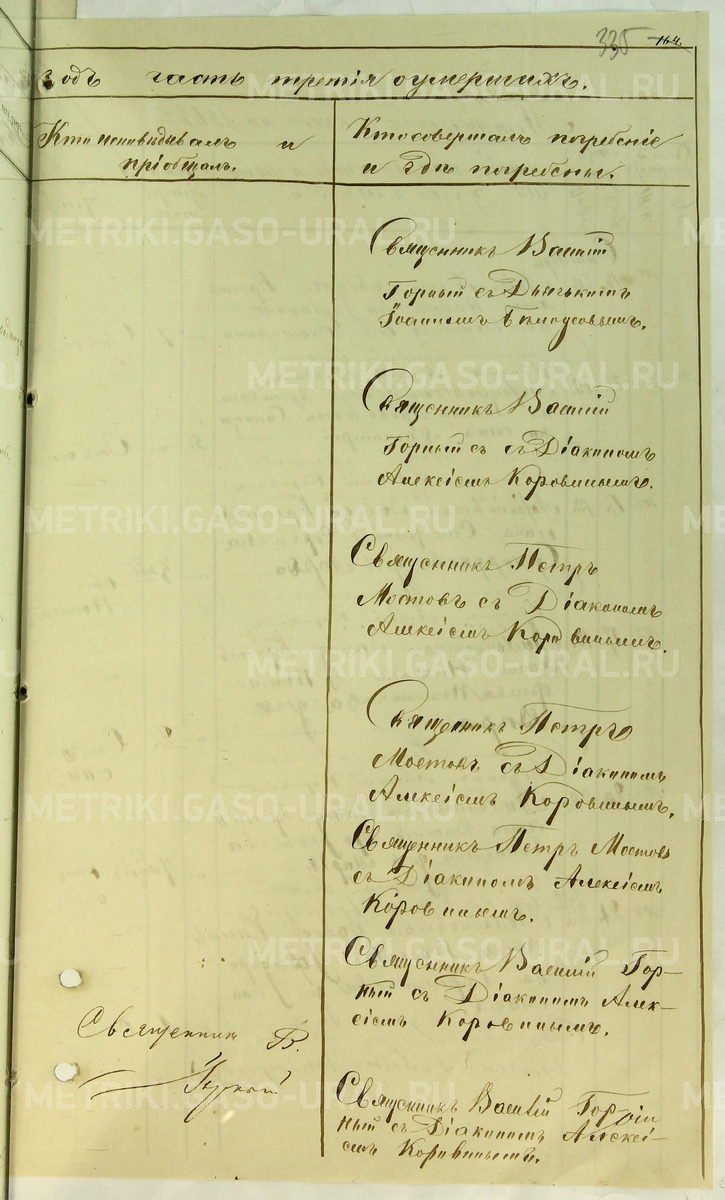 335 164.
годъ часть третія о умершихъ.
Кто исповѣдывалъ и
пріобщалъ.
Кто совершалъ погребеніе
и гдѣ погребены.
Священникъ Василій
Горный съ Дьячькомъ
Іоанномъ Бѣлоусовымъ.
Священникъ Василій
Горный съ съ Діакономъ
Алексіемъ Коровинымъ.
Священникъ Петръ
Мостовъ съ Діакономъ
Алексіемъ Коровинымъ.
Священникъ Петръ
Мостовъ съ Діакономъ
Алексіемъ Коровинымъ.
Священникъ Петръ Мостовъ
съ Діакономъ Алексіемъ
Коровинымъ.
Священникъ Василій Гор-
ный съ Діакономъ Алек-
сіемъ Коровинымъ.
Священникъ В.
Священникъ Василій Гор
ный съ Діакономъ Алексі-
емъ Коровинымъ.
METRIKI.GASO-URAL.RU